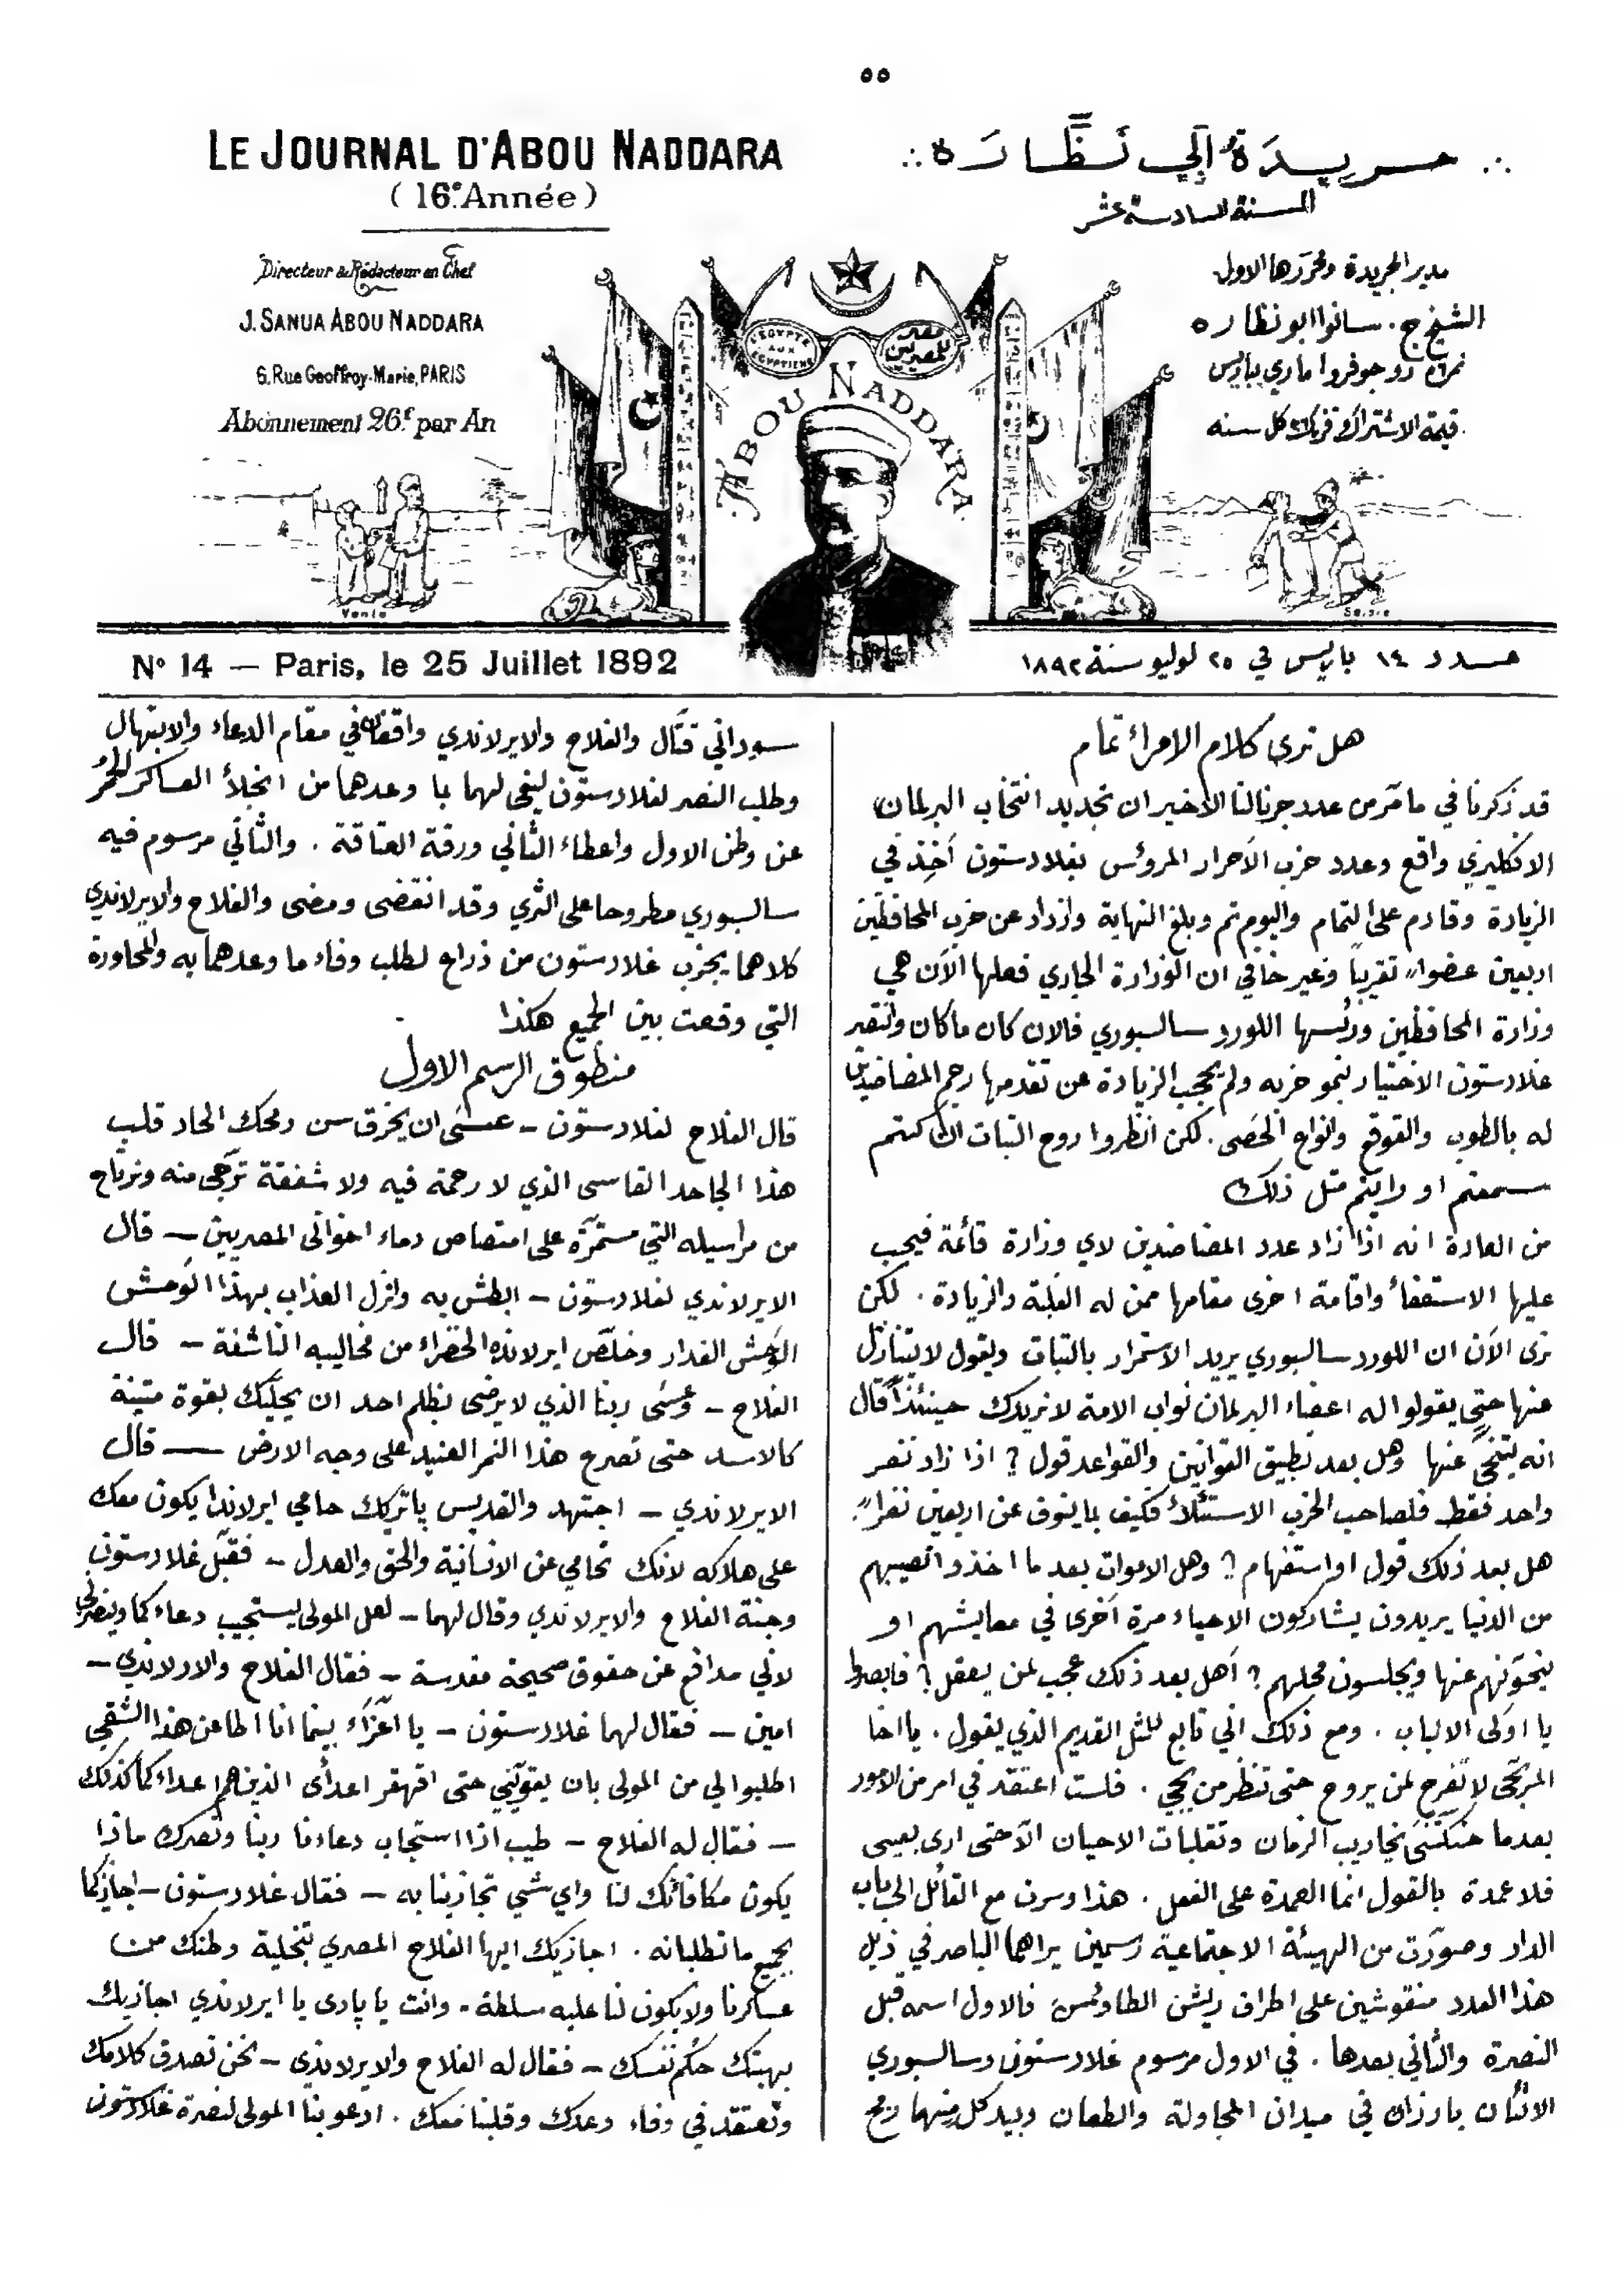 ٥٥
LE JOURNAL D'ABOU NADDARA
(16e. Année)
Directeur & Rédacteur en Chef
J. SANUA ABOU NADDARA
6, Rue Geoffroy-Marie, PARIS
Abonnement 26f. par An
جريدة ابي نظارة
السنة السادسة عشر
مدير الجريدة ومحررها الاول
الشيخ ج. سانوا ابو نظاره
نمرة ٦ رو جوفروا ماري بباريس
قيمة الاشتراك ٢٦ فرنك كل سنه
L'EGYPTE AUX EGYPTIENS
مصر للمصريين
ABOU NADDARA
Vente
Saisie
No 14 — Paris, le 25 Juillet 1892
عدد ١٤ باريس في ٢٥ لوليو سنة ١٨٩٢
هل ترى كلام الامراء تمام
قد ذكرنا في ما مرّ من عدد جرنالنا الأخير ان تجديد انتخاب البرلمان
الانكليزي واقع وعدد حزب الآحرار المرؤس بغلادستون آخذ في
الزيادة وقادم على التمام واليوم تم وبلغ النهاية وازداد عن حزب المحافظين
اربعين عضواً تقريباً وغير خافي ان الوزارة الجاري فعلها الآن هي
وزارة المحافظين ورئسها اللورد سالسبوري فالان كان ما كان وانتصر
غلادستون الاختيار بنمو حزبه ولم يحجب الزيادة عن تقدمها رجم المضاضدين
له بالطوب والقوقع وانواع الحصى. لكن انظروا روح الثبات ان كنتم
سمعتم او رايتم مثل ذلك
من العادة انه اذا زاد عدد المضاضدين لاي وزارة قائمة فيجب
عليها الاستعفاء واقامة اخرى مقامها ممن له الغلبة والزيادة. لكن
نرى الآن ان اللورد سالسبوري يريد الاستمرار بالثبات ويقول لا يتنازل
عنها حتى يقولوا له اعضاء البرلمان نواب الامة لا نريدك حينئذ قال
انه يتنحى عنها وهل بعد تطبيق القوانين والقواعد قول؟ اذا زاد نفر
واحد فقط فلصاحب الحزب الاستيلاء فكيف بما ينوف عن اربعين نفراً.
هل بعد ذلك قول او استفهام؟ وهل الاموات بعد ما اخذوا نصيبهم
من الدنيا يريدون يشاركون الاحياء مرة اخرى في معايشهم او
ينحونهم عنها ويجلسون محلهم؟ آهل بعد ذلك عجب لمن يعقل؟ فابصروا
يا اولى الالباب. ومع ذلك اني تابع للمثل القديم الذي يقول. يا اخا
المرجّى لا تفرح لمن يروح حتى تنظر من يجي. فلست اعتقد في امر من الامور
بعدما حنكتني تجاريب الزمان وتقلبات الاحيان الا حتى ارى بعيني
فلا عمدة بالقول انما العمدة على الفعل. هذا وسرت مع القائل الى باب
الدار وصورت من الهيئة الاجتماعية رسمين يراهما الباصر في ذيل
هذا العدد منقوشين على اطراف ريش الطاوئس فالاول اسمه قبل
النصرة والثاني بعدها. في الاول مرسوم غلادستون وسالسبوري
الاثنان بارزان في ميدان المجاولة والطعان وبيد كل منهما رمح
سوداني قتّال والفلاح والايرلاندي واقفان في مقام الدعاء والابتهال
وطلب النصر لغلادستون ليفي لهما بما وعدهما من انجلاء العساكر الحمر
عن وطن الاول واعطاء الثاني ورقة العتاقة. والثاني مرسوم فيه
سالسبوري مطروحا على الثرى وقد انقضى ومضى والفلاح والايرلاندي
كلاهما يجرّب غلادستون من ذراع لطلب وفاء ما وعدهما به والمحاورة
التي وقعت بين الجميع هكذا
منطوق الرسم الاول
قال الفلاح لغلادستون – عسى ان يخرق سن رمحك الحاد قلب
هذا الجاحد القاسى الذي لا رحمة فيه ولا شفقة ترجّى منه ونرتاح
من مراسيله التي مستمرّة على امتصاص دماء اخواتى المصريين – قال
الايرلاندي لغلادستون – ابطش به وانزل العذاب بهذا الوحش
الوحش الغدار وخلّص ايرلانده الخضراء من مخاليبه الناشفة – قال
الفلاح – وعسى ربنا الذي لا يرضى بظلم احد ان يجعلك بقوة متينة
كالاسد حتى تصرع هذا النمر العنيد على وجه الارض — قال
الايرلاندي – اجتهد والقديس پاتريك حامي ايرلاندا يكون معك
على هلاكه لانك تحامي عن الانسانية والحق والعدل – فقبّل غلادستون
وجنة الفلاح والايرلاندي وقال لهما – لعل المولى يستجيب دعاءكما وينصرني
لاني مدافع عن حقوق صحيحة مقدسة – فقال الفلاح والارلاندي –
امين – فقال لهما غلادستون – يا اعزّاء بينما انا اطاعن هذا الشقي
اطلبوا لي من المولى بان يقوّيني حتى اقهقر اعدأى الذين هم اعداءكما كذلك
– فقال له الفلاح – طيب اذا استجاب دعاءنا ربنا ونصرك ماذا
يكون مكافاتك لنا واي شي تجازينا به – فقال غلادستون – اجازيكما
بجميع ما تطلبانه. اجازيك ايها الفلاح المصري بتخلية وطنك من
عساكرنا ولا يكون لنا عليه سلطة. وانت يا پادى يا ايرلاندي اجازيك
بهبتك حكم نفسك – فقال له الفلاح والايرلاندي – نحن نصدق كلامك
ونعتقد في وفاء وعدك وقلبنا معك. ادعو بنا المولى لنصرة غلادستون